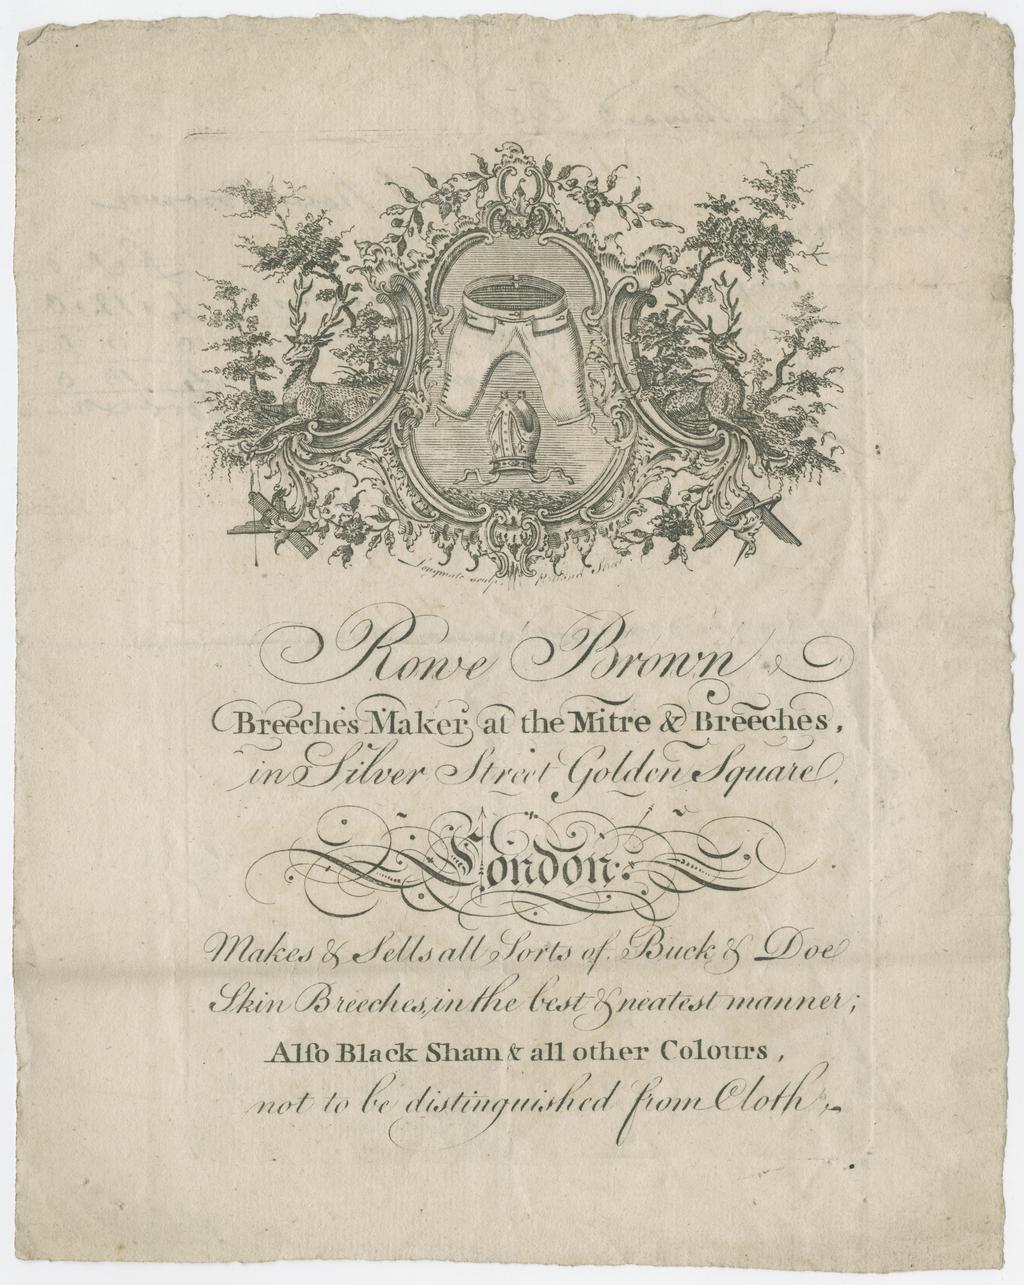 Longmate sculp.
Rowe Brown
Breeches Maker at the Mitre & Breeches,
in Silver Street Golden Square.
London:
Makes & Sells all Sorts of Buck & Doe
Skin Breeches, in the best & neatest manner;
Alſo Black Sham & all other Colours,
not to be distinguished from Cloth,